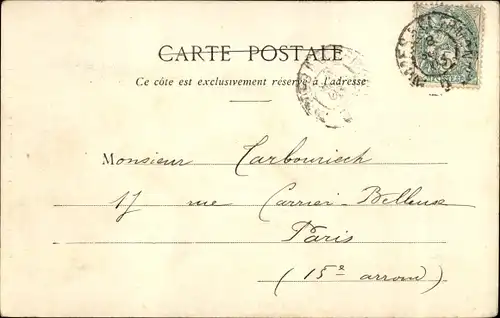 CARTE POSTALE
Ce côte est exclusivement réservé à l'adresse
Monsieur Tarbouriech
17 rue Carrier-Belleuse
Paris
(15e arrond)